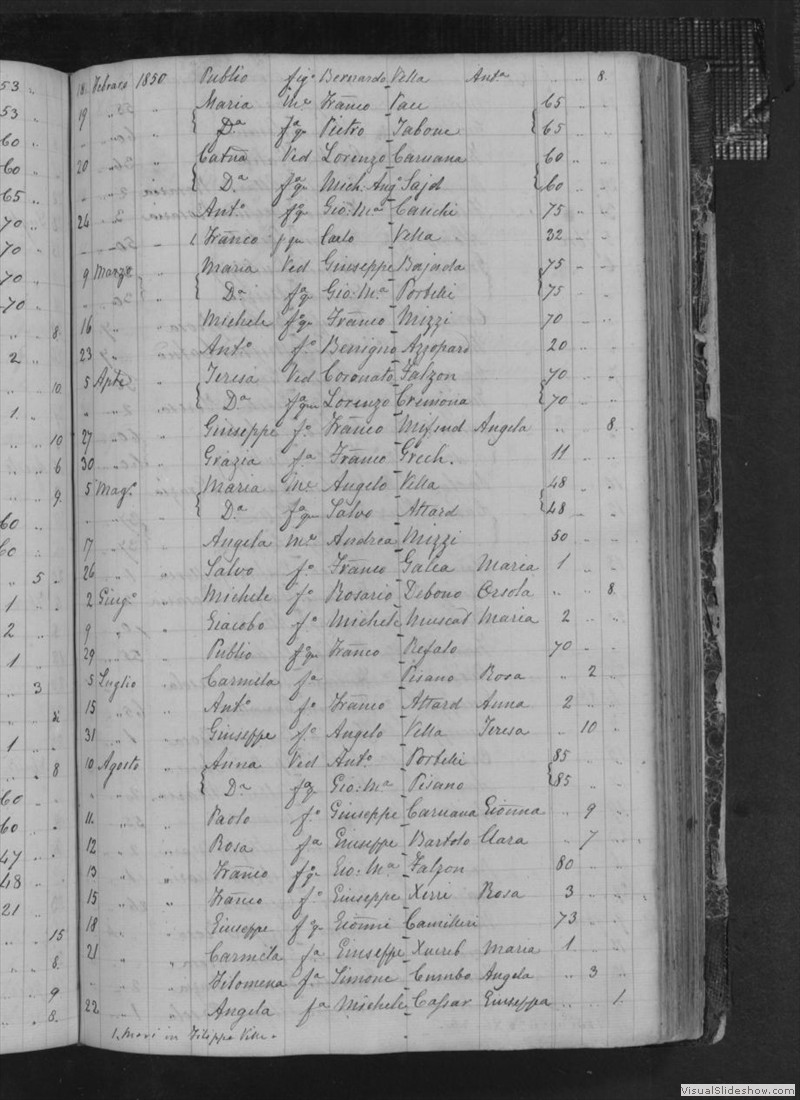 18 Febraro 1850 Publio figo Bernardo Vella Anta " " 8.
19 " " Maria Me Franco Pace 65
Da fa qu Pietro Tabone 65
20 " " Catna Ved Lorenzo Caruana 60
Da fa qu Mich: Ango Sajd 60
24 " " Anto fo qu Gio: Ma Cauchi 75
1. Franco f qu Carlo Vella 32
9 Marzo " Maria Ved Giuseppe Bajada 75
Da fa qu Gio: Ma Portelli 75
16 " " Michele fo qu Franco Mizzi 70
23 " " Anto fo Benigno Azzopard 20
5 Aple " Teresa Ved Coronato Falzon 70
Da fa qu Lorenzo Cremona 70
27 Giuseppe fo Franco Mifsud Angela " " 8.
30 Grazia fa Franco Grech. 11
5 Mago Maria Me Angelo Vella 48
Da fa qu Salvo Attard 48
17 Angela Me Andrea Mizzi 50
26 " Salvo fo Franco Galea Maria 1
2 Giugo " Michele fo Rosario Debono Orsola " " 8.
9 " " Giacobo fo Michele Muscat Maria 2
29 " " Publio fo qu Franco Refalo 70
5 Luglio " Carmela fa Pisano Rosa " 2
15 " " Anto fo Franco Attard Anna 2
31 " " Giuseppe fo Angelo Vella Teresa " 10
10 Agosto " Anna Ved Anto Portelli 85
Da fa qu Gio: Ma Pisano 85
11. " " Paolo fo Giuseppe Caruana Gionna " 9
12 " " Rosa fa Giuseppe Bartolo Clara " 7
13 " " Franco fo qu Gio: Ma Falzon 80
15 " " Franco fo Giuseppe Xirri Rosa 3
18 " " Giuseppe f qu Gionni Camilleri 73
21 " " Carmela fa Giuseppe Xuereb Maria 1
" " Filomena fa Simone Cumbo Angela " 3
22 " " Angela fa Michele Cassar Giuseppa " " 1.
1. Mori in Filippo Ville.
53
53
60
60
65
70
70
70
70
8.
2
10.
1.
10
6
9.
60
60
5
1
2
1
3
1
8
60
60
47
48
21
15
8.
9
8.
VisualSlideshow.com